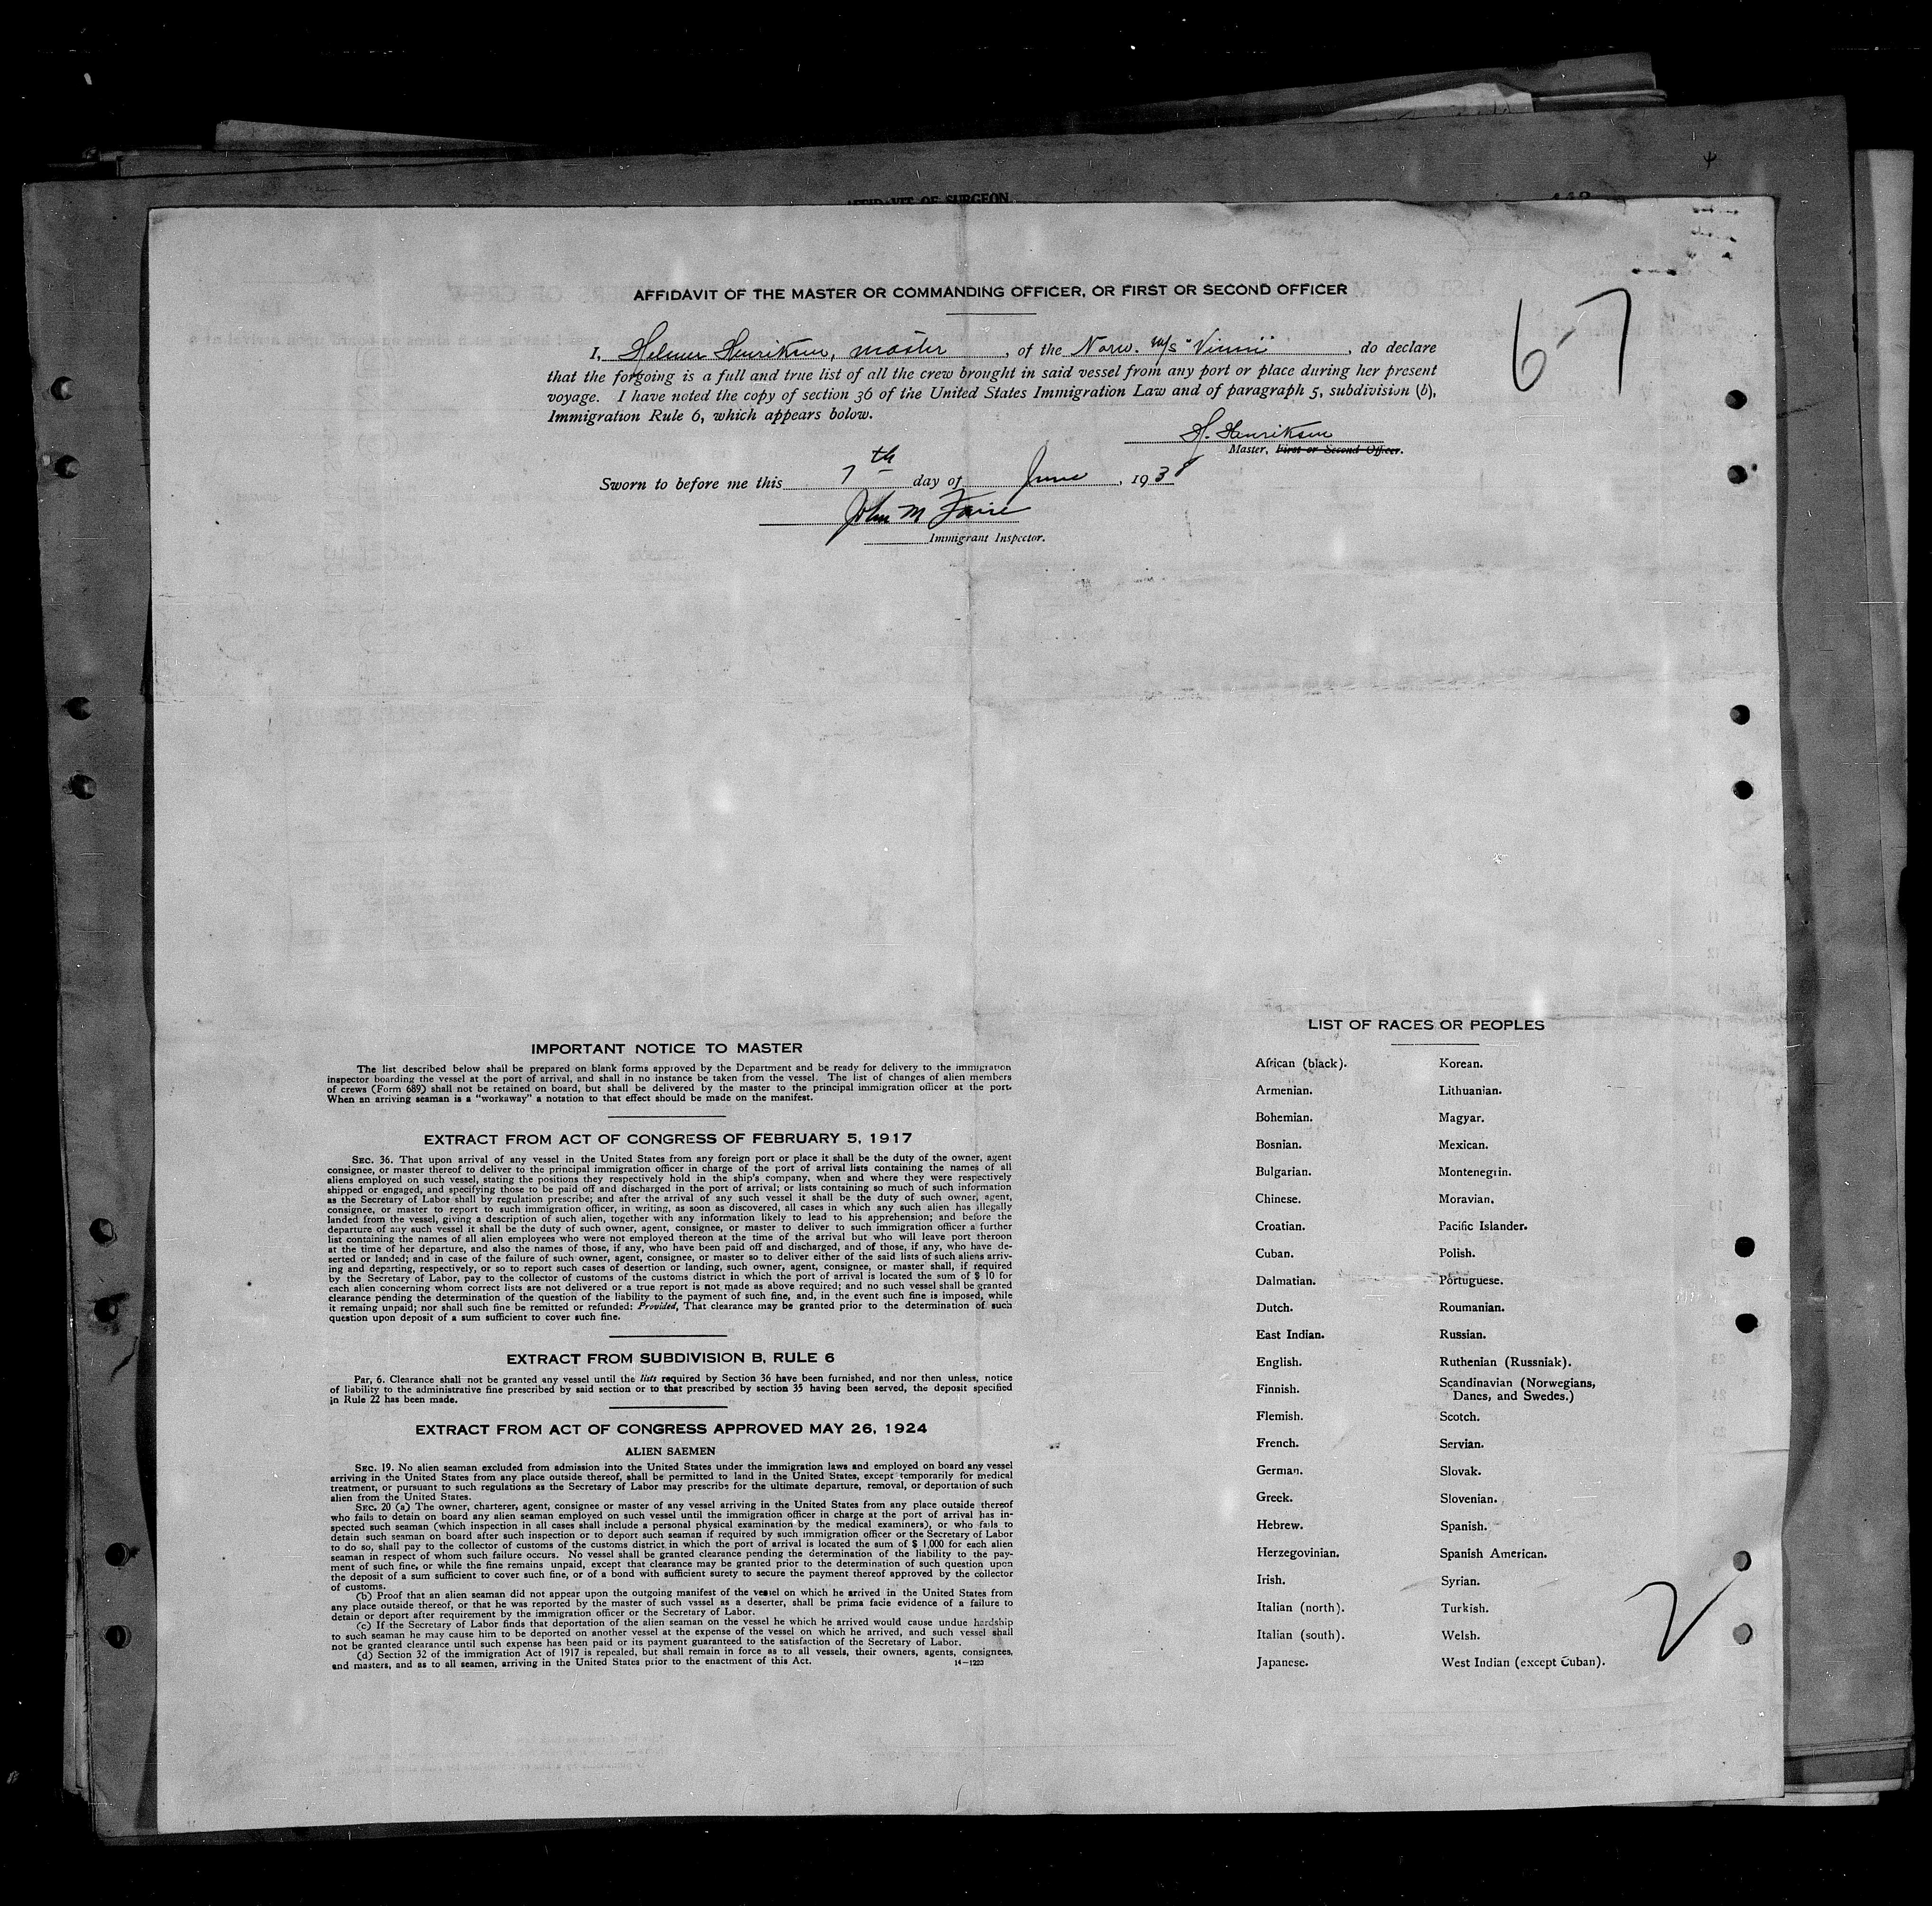 AFFIDAVIT OF SURGEON
AFFIDAVIT OF THE MASTER OR COMMANDING OFFICER, OR FIRST OR SECOND OFFICER
6-7
I, Helmer Henriksen, master, of the Norw. m/s "Vinni", do declare
that the forgoing is a full and true list of all the crew brought in said vessel from any port or place during her present
voyage. I have noted the copy of section 36 of the United States Immigration Law and of paragraph 5, subdivision (b),
Immigration Rule 6, which appears below.
H. Henriksen
Master, First or Second Officer.
Sworn to before me this 7th day of June, 1938
John M
Immigrant Inspector.
IMPORTANT NOTICE TO MASTER
The list described below shall be prepared on blank forms approved by the Department and be ready for delivery to the immigration
inspector boarding the vessel at the port of arrival, and shall in no instance be taken from the vessel. The list of changes of alien members
of crews (Form 689) shall not be retained on board, but shall be delivered by the master to the principal immigration officer at the port.
When an arriving seaman is a "workaway" a notation to that effect should be made on the manifest.
EXTRACT FROM ACT OF CONGRESS OF FEBRUARY 5, 1917
SEC. 36. That upon arrival of any vessel in the United States from any foreign port or place it shall be the duty of the owner, agent
consignee, or master thereof to deliver to the principal immigration officer in charge of the port of arrival lists containing the names of all
aliens employed on such vessel, stating the positions they respectively hold in the ship's company, when and where they were respectively
shipped or engaged, and specifying those to be paid off and discharged in the port of arrival; or lists containing so much of such information
as the Secretary of Labor shall by regulation prescribe; and after the arrival of any such vessel it shall be the duty of such owner, agent,
consignee, or master to report to such immigration officer, in writing, as soon as discovered, all cases in which any such alien has illegally
landed from the vessel, giving a description of such alien, together with any information likely to lead to his apprehension; and before the
departure of any such vessel it shall be the duty of such owner, agent, consignee, or master to deliver to such immigration officer a further
list containing the names of all alien employees who were not employed thereon at the time of the arrival but who will leave port theroon
at the time of her departure, and also the names of those, if any, who have been paid off and discharged, and of those, if any, who have de-
serted or landed; and in case of the failure of such owner, agent, consignee, or master so to deliver either of the said lists of such aliens arriv-
ing and departing, respectively, or so to report such cases of desertion or landing, such owner, agent, consignee, or master shall, if required
by the Secretary of Labor, pay to the collector of customs of the customs district in which the port of arrival is located the sum of $ 10 for
each alien concerning whom correct lists are not delivered or a true report is not made as above required; and no such vessel shall be granted
clearance pending the determination of the question of the liability to the payment of such fine, and, in the event such fine is imposed, while
it remaing unpaid; nor shall such fine be remitted or refunded: Provided, That clearance may be granted prior to the determination of such
question upon deposit of a sum sufficient to cover such fine.
EXTRACT FROM SUBDIVISION B, RULE 6
Par, 6. Clearance shall not be granted any vessel until the lists required by Section 36 have been furnished, and nor then unless, notice
of liability to the administrative fine prescribed by said section or to that prescribed by section 35 having been served, the deposit specified
in Rule 22 has been made.
EXTRACT FROM ACT OF CONGRESS APPROVED MAY 26, 1924
ALIEN SAEMEN
SEC. 19. No alien seaman excluded from admission into the United States under the immigration laws and employed on board any vessel
arriving in the United States from any place outside thereof, shall be permitted to land in the United States, except temporarily for medical
treatment, or pursuant to such regulations as the Secretary of Labor may prescribe for the ultimate departure, removal, or deportation of such
alien from the United States.
SEC. 20 (a) The owner, charterer, agent, consignee or master of any vessel arriving in the United States from any place outside thereof
who fails to detain on board any alien seaman employed on such vessel until the immigration officer in charge at the port of arrival has in-
spected such seaman (which inspection in all cases shall include a personal physical examination by the medical examiners), or who fails to
detain such seaman on board after such inspection or to deport such seaman if required by such immigration officer or the Secretary of Labor
to do so, shall pay to the collector of customs of the customs district in which the port of arrival is located the sum of $ 1,000 for each alien
seaman in respect of whom such failure occurs. No vessel shall be granted clearance pending the determination of the liability to the pay-
ment of such fine, or while the fine remains unpaid, except that clearance may be granted prior to the determination of such question upon
the deposit of a sum sufficient to cover such fine, or of a bond with sufficient surety to secure the payment thereof approved by the collector
of customs.
(b) Proof that an alien seaman did not appear upon the outgoing manifest of the vessel on which he arrived in the United States from
any place outside thereof, or that he was reported by the master of such vsssel as a deserter, shall be prima facie evidence of a failure to
detain or deport after requirement by the immigration officer or the Secretary of Labor.
(c) If the Secretary of Labor finds that deportation of the alien seaman on the vessel he which he arrived would cause undue hardship
to such seaman he may cause him to be deported on another vessel at the expense of the vessel on which he arrived, and such vessel shall
not be granted clearance until such expense has been paid or its payment guaranteed to the satisfaction of the Secretary of Labor.
(d) Section 32 of the immigration Act of 1917 is repealed, but shall remain in force as to all vessels, their owners, agents, consignees,
and masters, and as to all seamen, arriving in the United States prior to the enactment of this Act. 14—1223
LIST OF RACES OR PEOPLES
African (black). Korean.
Armenian. Lithuanian.
Bohemian. Magyar.
Bosnian. Mexican.
Bulgarian. Montenegrin.
Chinese. Moravian.
Croatian. Pacific Islander.
Cuban. Polish.
Dalmatian. Portuguese.
Dutch. Roumanian.
East Indian. Russian.
English. Ruthenian (Russniak).
Finnish. Scandinavian (Norwegians,
Danes, and Swedes.)
Flemish. Scotch.
French. Servian.
German. Slovak.
Greek. Slovenian.
Hebrew. Spanish.
Herzegovinian. Spanish American.
Irish. Syrian.
Italian (north). Turkish.
Italian (south). Welsh.
Japanese. West Indian (except Cuban).
2